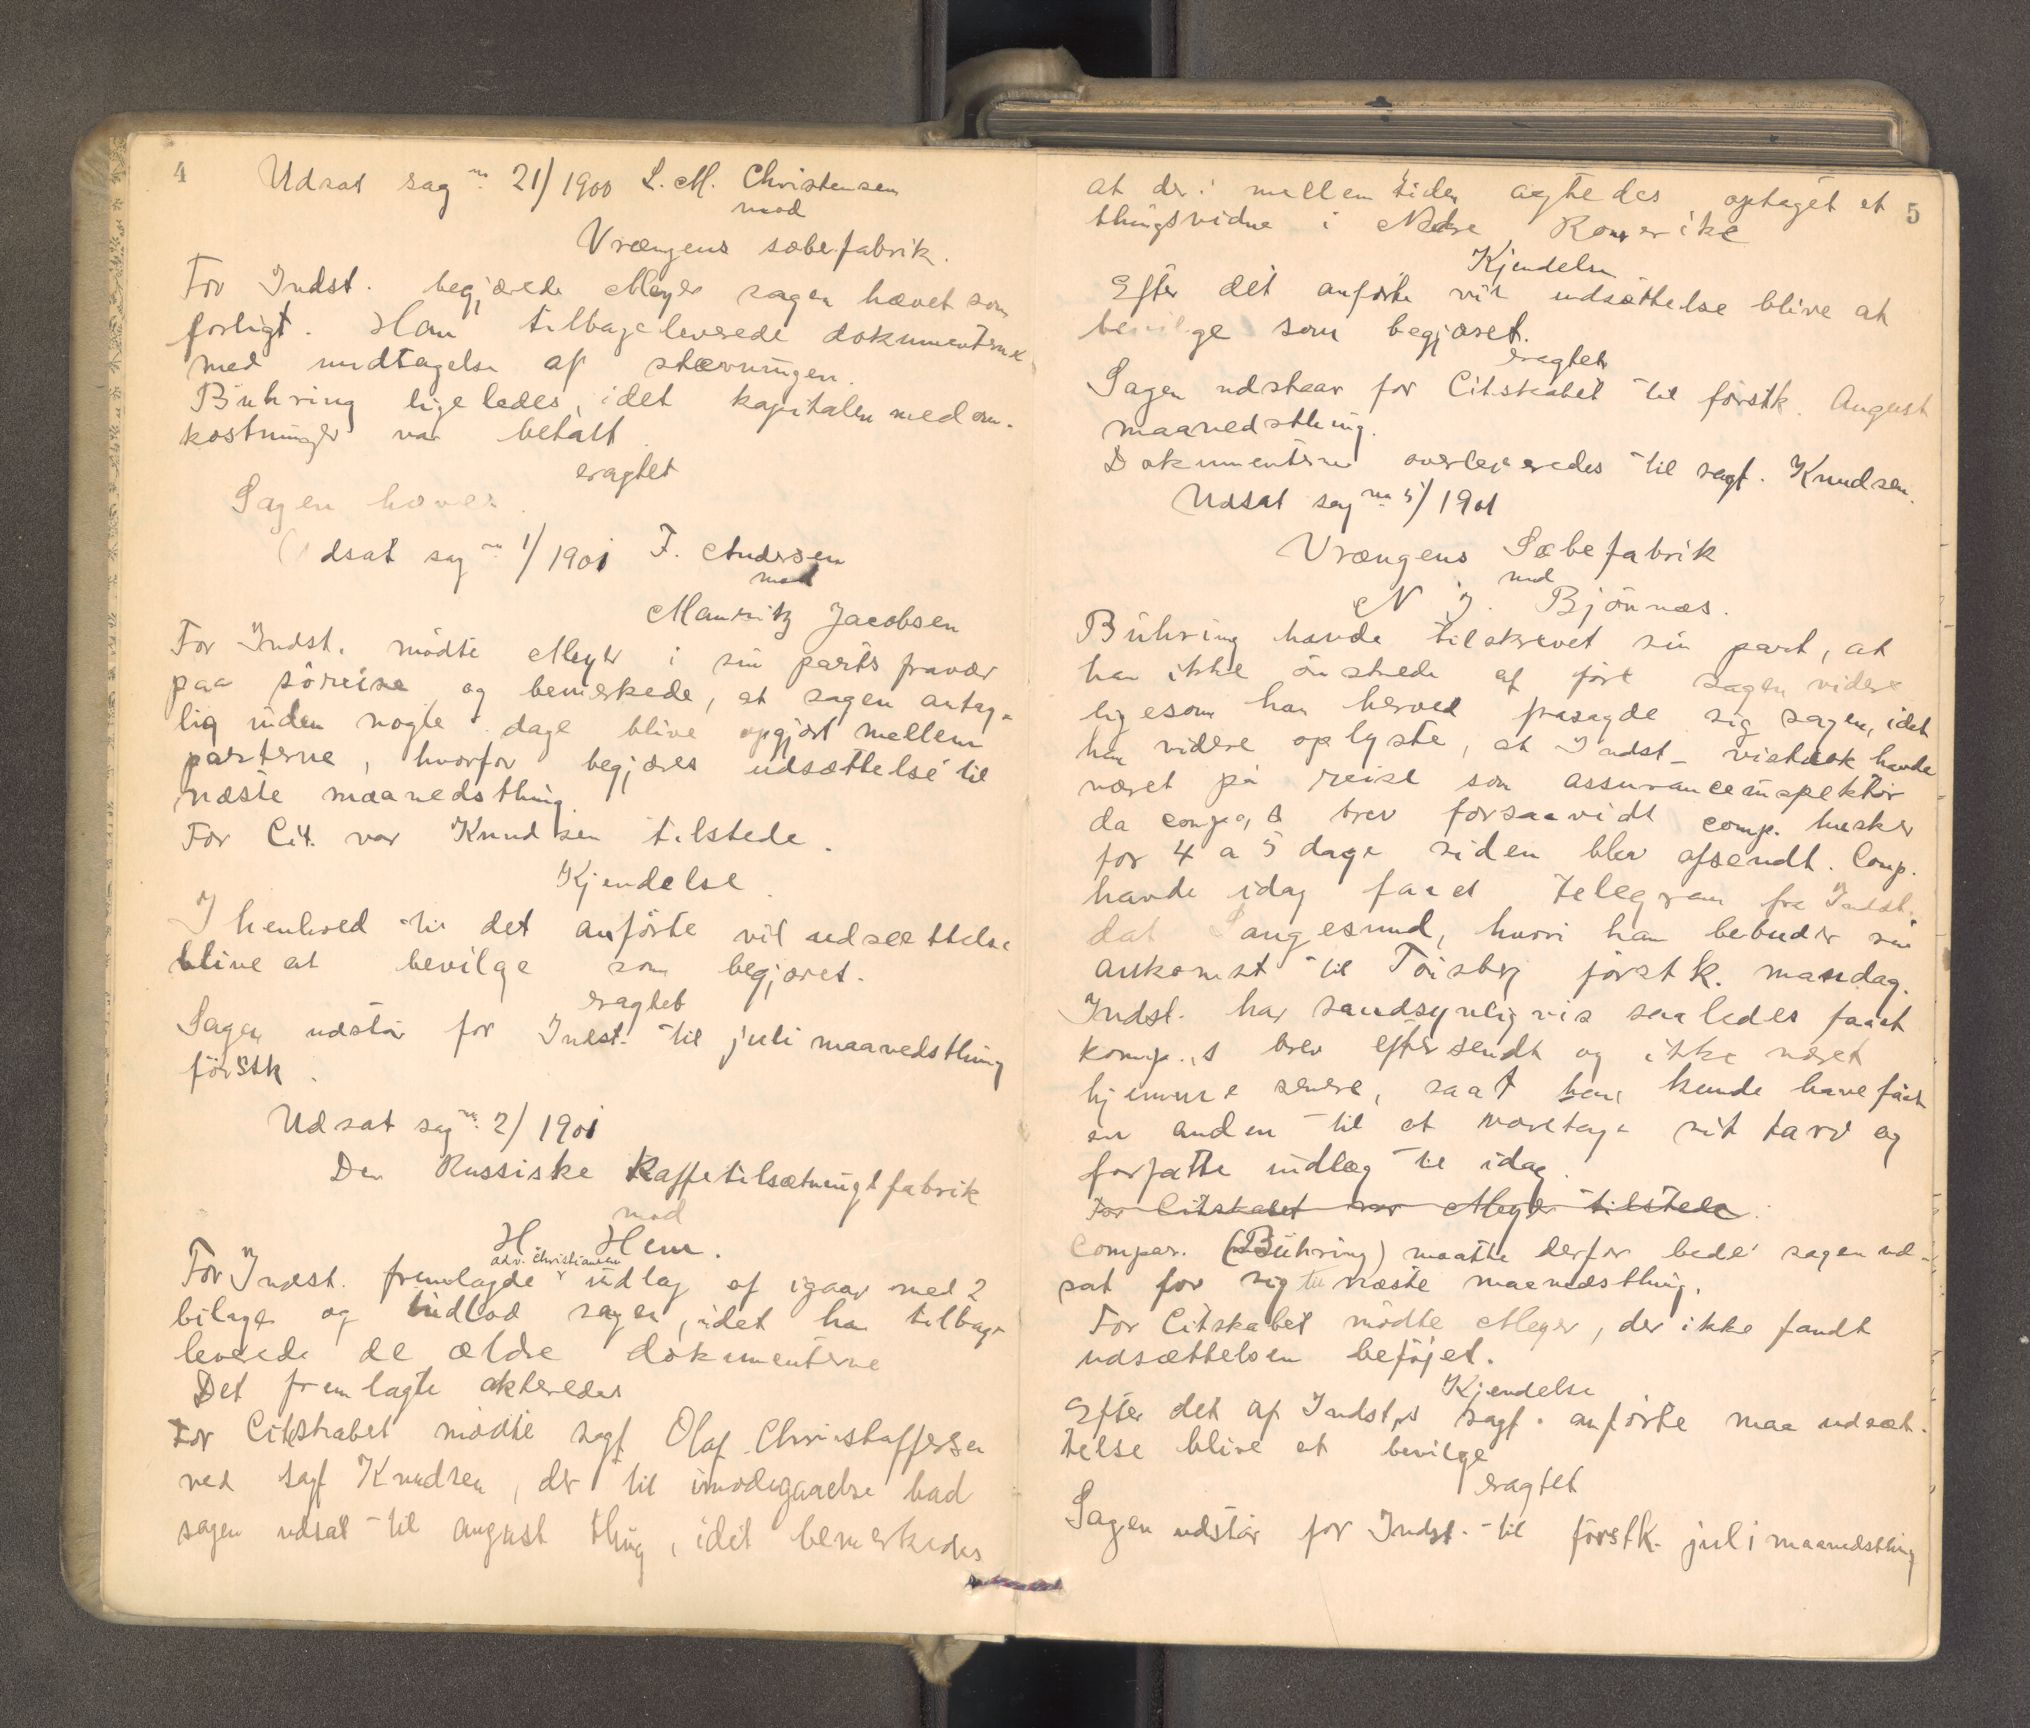 4
Udsat sag no 21/1900 L. M. Christensen
mod
Vrængens sæbefabrik.
For Indst. begjærede Meyer sagen hævet som
forligt. Han tilbageleverede dokumenterne
med undtagelse af stævningen.
Bühring ligeledes, idet kapitalen med om-
kostninger var betalt.
eragtet
Sagen hæves.
Udsat sag no 1/1901 F. Andersen
mod
Mauritz Jacobsen
For Indst. mödte Meyer i sin parts fravær
paa söreise og bemerkede, at sagen antag-
lig inden nogle dage blive opgjört mellem
parterne, hvorfor begjæres udsættelse til
næste maanedsthing.
For Cit. var Knudsen tilstede.
Kjendelse.
I henhold til det anförte vil udsættelse
blive at bevilge som begjæret.
eragtet
Sagen udstår for Indst. til juli maanedsthing
förstk.
Udsat sag no 2/1901
Den Russiske Kaffetilsætningsfabrik
mod
H. Hem.
adv. Christiansen
For Indst. fremlagde indlæg af igaar med 2
bilage og indlod sagen, idet han tilbage
leverede de ældre dokumenterne
Det fremlagte akteredes
For Citskabet mödte sagf Olaf Christoffersen
ved sagf Knudsen, der til imödegaaelse bad
sagen udsat til august thing, idet bemerkedes
5
at der i mellemtiden agtedes optaget et
thingsvidne i Nedre Romerike
Kjendelse
Efter det anförte vil udsættelse blive at
bevilge som begjæret.
eragtet
Sagen udstaar for Citskabet til förstk. August
maanedsthing.
Dokumenterne overleveredes til sagf. Knudsen.
Udsat sag no 5/1901
Vrængens Sæbefabrik
mod
N. J. Bjönnæs.
Bühring havde tilskrevet sin part, at
han ikke önskede at före sagen videre
ligesom han herved frasagde sig sagen, idet
han videre oplyste, at Indst. vistnok havde
været på reise som assuranceinspektör
da comp,s brev forsaavidt comp. husker
for 4 a 5 dage siden blev afsendt. Comp.
havde idag faaet telegram fra Indst.
dat Langesund, hvori han bebuder sin
ankomst til Tönsberg förstk. mandag.
Indst. har sandsynligvis saaledes faaet
komp.,s brev eftersendt og ikke været
hjemme senere, saat han kunde have fået
en anden til at varetage sit tarv og
forfatte indlæg til idag.
For Citskabet var Meyer tilstede.
Compar. (Bühring) maatte derfor bede sagen ud-
sat for sig til næste maanedsthing.
For Citskabet mödte Meyer, der ikke fandt
udsættelsen beföjet.
Kjendelse
Efter det af Indst,s sagf. anförte maa udsæt-
telse blive at bevilge
eragtet
Sagen udstår for Indst. til förstk. juli maanedsthing